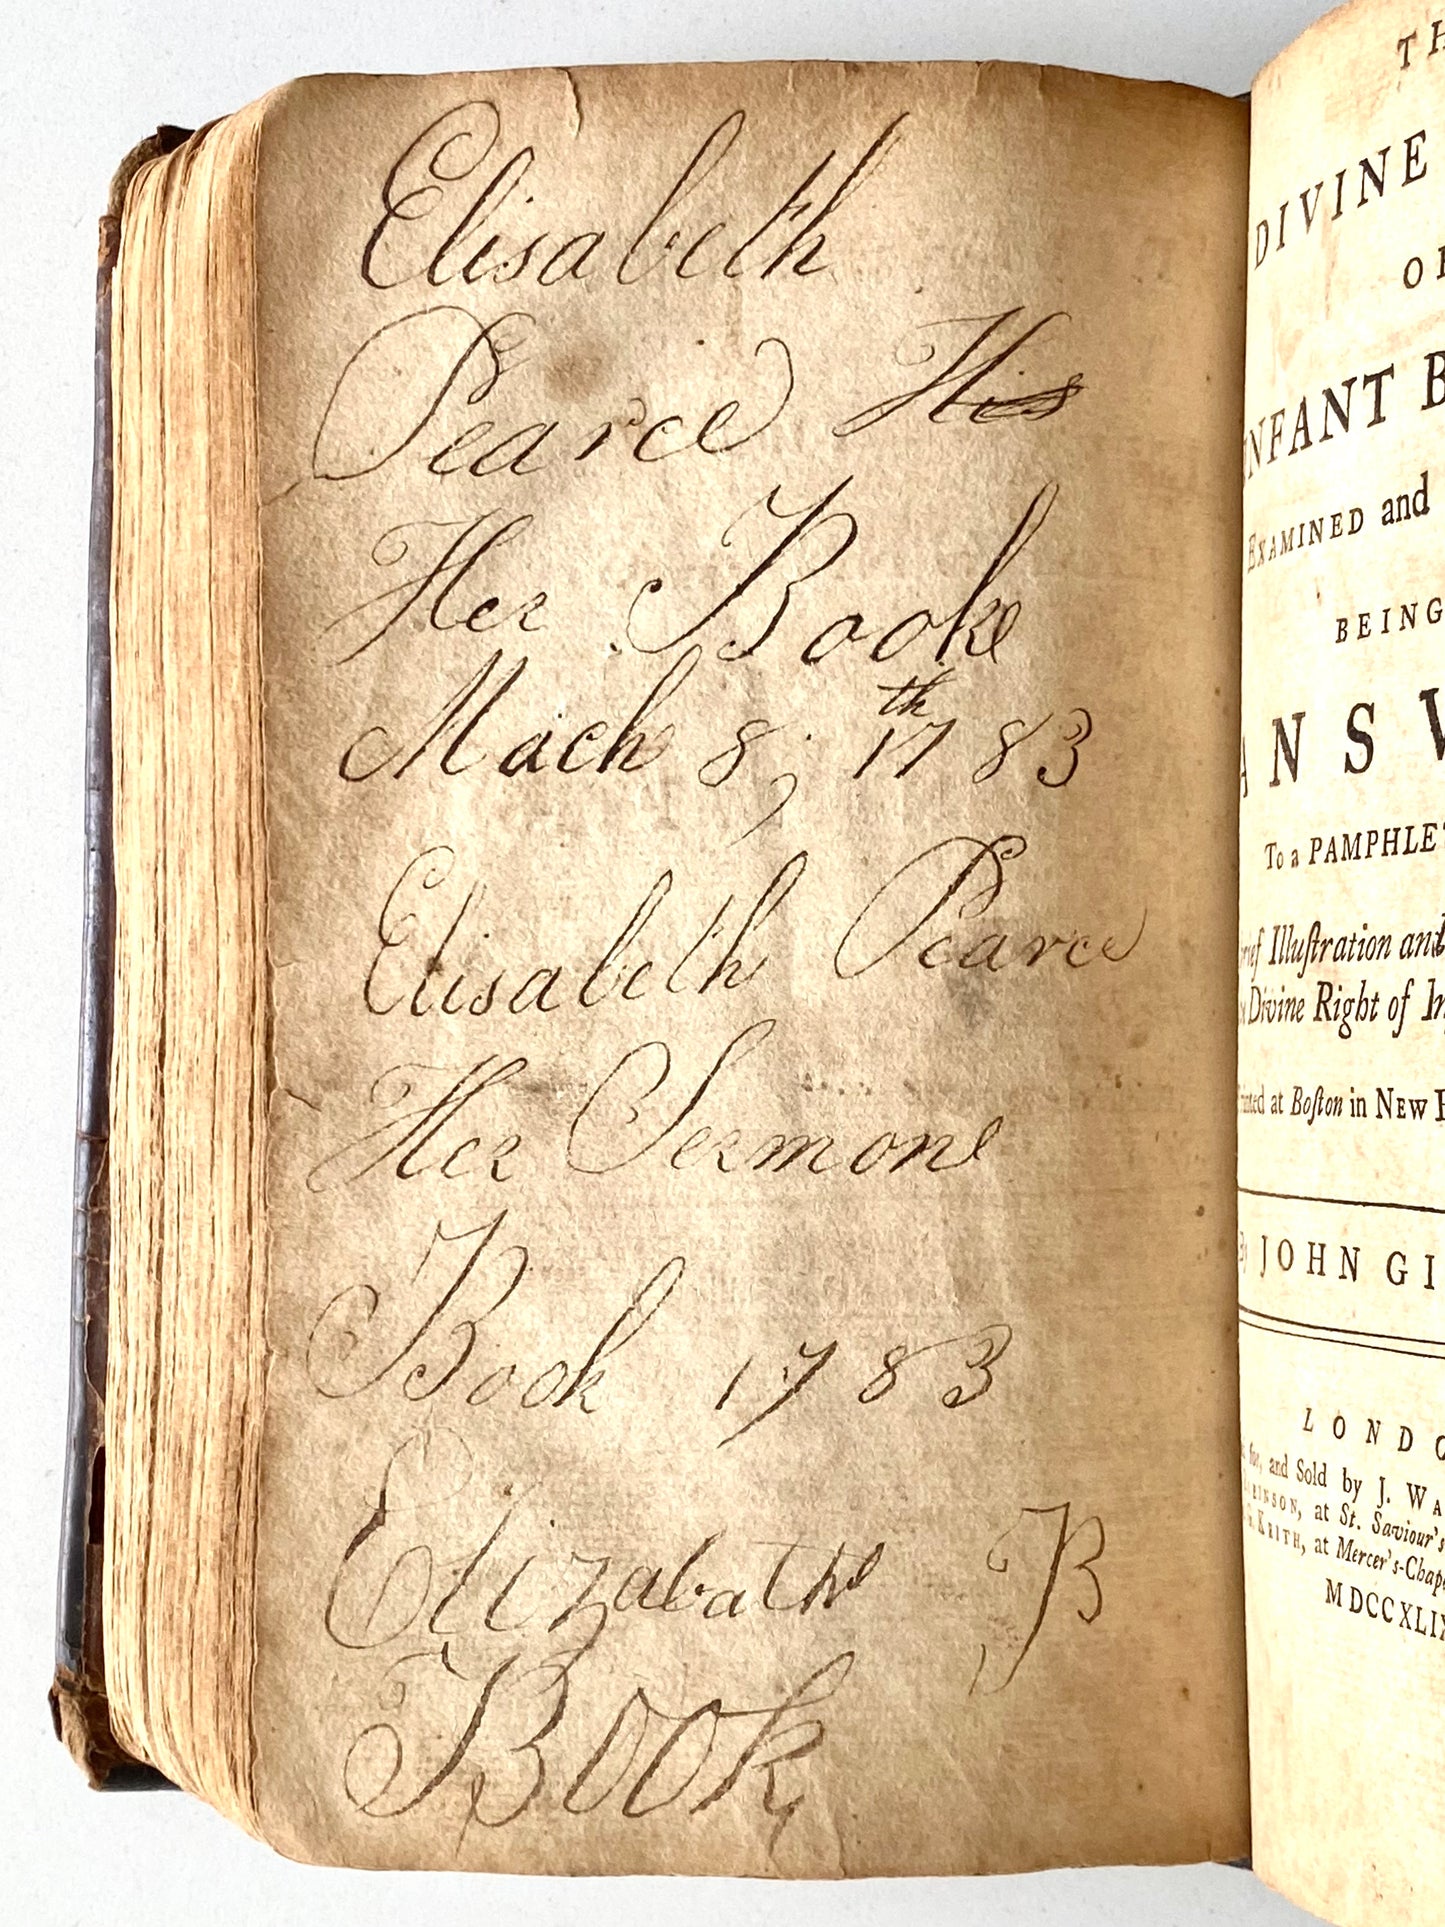 Elisabeth
Pearce His
Her Booke
Mach 8, th 1783
Elisabeth Pearce
Her Sermone
Book 1783
Elizabathe B
Book
TH
DIVINE
OF
INFANT B
EXAMINED and
BEING
ANSW
To a PAMPHLET
rief Illuſtration and
Divine Right of In
rinted at Boſton in NEW
By JOHN GI
LONDO
for, and Sold by J. WA
at St. Saviour's
G. KEITH, at Mercer's-Chape
MDCCXLIX